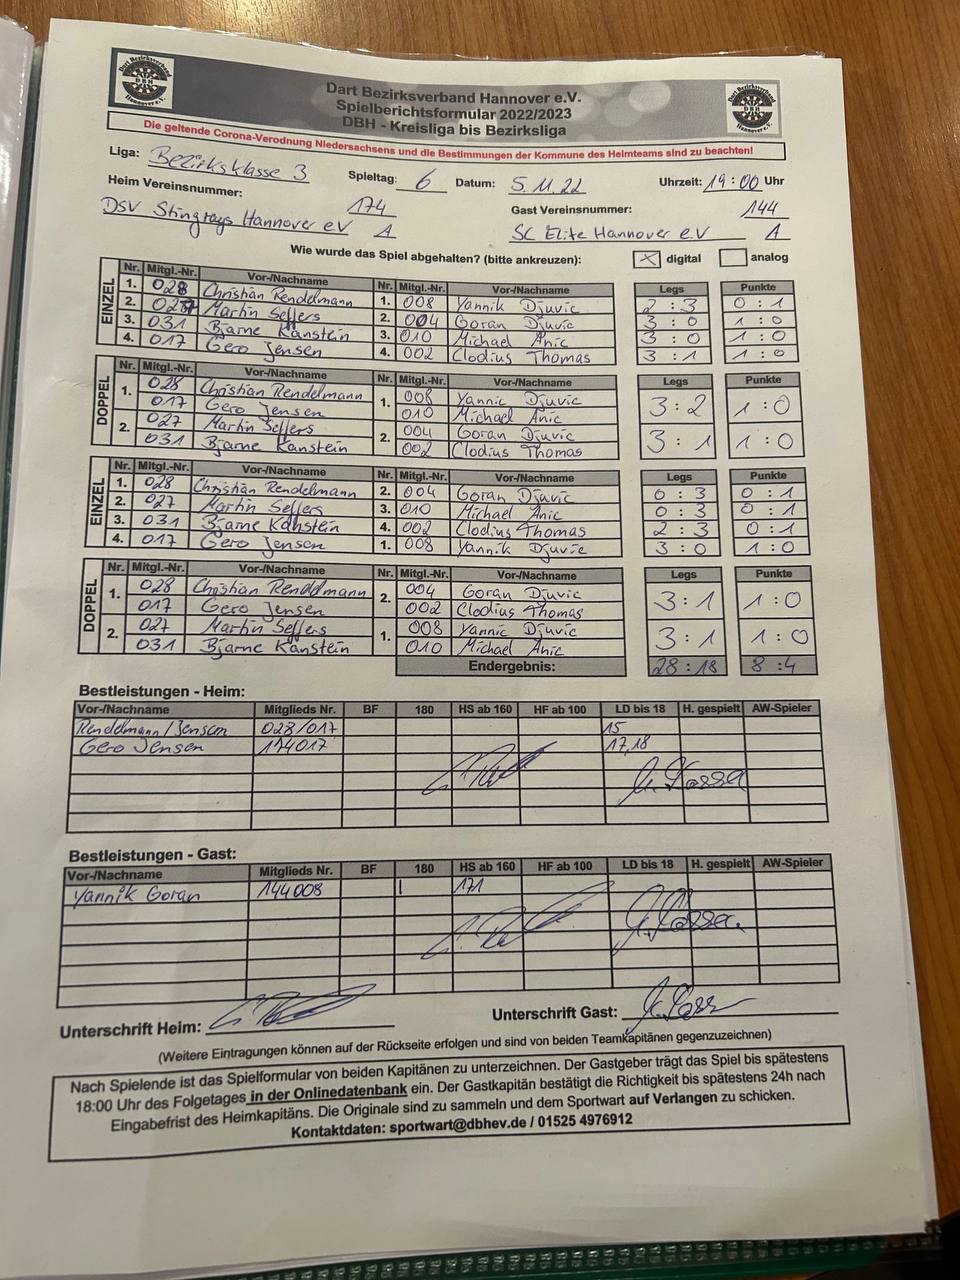 Dart Bezirksverband Hannover e.V.
Spielberichtsformular 2022/2023
DBH - Kreisliga bis Bezirksliga
Die geltende Corona-Verodnung Niedersachsens und die Bestimmungen der Kommune des Heimteams sind zu beachten!
Liga: Bezirksklasse 3 Spieltag: 6 Datum: 5.11.22 Uhrzeit: 19:00 Uhr
Heim Vereinsnummer: 174 Gast Vereinsnummer: 144
DSV Stingrays Hannover e.V A SC Elite Hannover e.V A
Wie wurde das Spiel abgehalten? (bitte ankreuzen): X digital analog
EINZEL
Nr. Mitgl.-Nr. Vor-/Nachname Nr. Mitgl.-Nr. Vor-/Nachname Legs Punkte
1. 028 Christian Rendelmann 1. 008 Yannik Djuvic 2 : 3 0 : 1
2. 027 Martin Seffers 2. 004 Goran Djuvic 3 : 0 1 : 0
3. 031 Bjarne Kanstein 3. 010 Michael Anic 3 : 0 1 : 0
4. 017 Gero Jensen 4. 002 Clodius Thomas 3 : 1 1 : 0
DOPPEL
Nr. Mitgl.-Nr. Vor-/Nachname Nr. Mitgl.-Nr. Vor-/Nachname Legs Punkte
1. 028 Christian Rendelmann 1. 008 Yannic Djuvic 3 : 2 1 : 0
017 Gero Jensen 010 Michael Anic
2. 027 Martin Seffers 2. 004 Goran Djuvic 3 : 1 1 : 0
031 Bjarne Kanstein 002 Clodius Thomas
EINZEL
Nr. Mitgl.-Nr. Vor-/Nachname Nr. Mitgl.-Nr. Vor-/Nachname Legs Punkte
1. 028 Christian Rendelmann 2. 004 Goran Djuvic 0 : 3 0 : 1
2. 027 Martin Seffers 3. 010 Michael Anic 0 : 3 0 : 1
3. 031 Bjarne Kanstein 4. 002 Clodius Thomas 2 : 3 0 : 1
4. 017 Gero Jensen 1. 008 Yannik Djuvic 3 : 0 1 : 0
DOPPEL
Nr. Mitgl.-Nr. Vor-/Nachname Nr. Mitgl.-Nr. Vor-/Nachname Legs Punkte
1. 028 Christian Rendelmann 2. 004 Goran Djuvic 3 : 1 1 : 0
017 Gero Jensen 002 Clodius Thomas
2. 027 Martin Seffers 1. 008 Yannic Djuvic 3 : 1 1 : 0
031 Bjarne Kanstein 010 Michael Anic
Endergebnis: 28 : 18 8 : 4
Bestleistungen - Heim:
Vor-/Nachname Mitglieds Nr. BF 180 HS ab 160 HF ab 100 LD bis 18 H. gespielt AW-Spieler
Rendelmann/Jensen 028/017 15
Gero Jensen 174017 17,18
Bestleistungen - Gast:
Vor-/Nachname Mitglieds Nr. BF 180 HS ab 160 HF ab 100 LD bis 18 H. gespielt AW-Spieler
Yannik Goran 144008 | 171
Unterschrift Heim: Unterschrift Gast:
(Weitere Eintragungen können auf der Rückseite erfolgen und sind von beiden Teamkapitänen gegenzuzeichnen)
Nach Spielende ist das Spielformular von beiden Kapitänen zu unterzeichnen. Der Gastgeber trägt das Spiel bis spätestens
18:00 Uhr des Folgetages in der Onlinedatenbank ein. Der Gastkapitän bestätigt die Richtigkeit bis spätestens 24h nach
Eingabefrist des Heimkapitäns. Die Originale sind zu sammeln und dem Sportwart auf Verlangen zu schicken.
Kontaktdaten: sportwart@dbhev.de / 01525 4976912